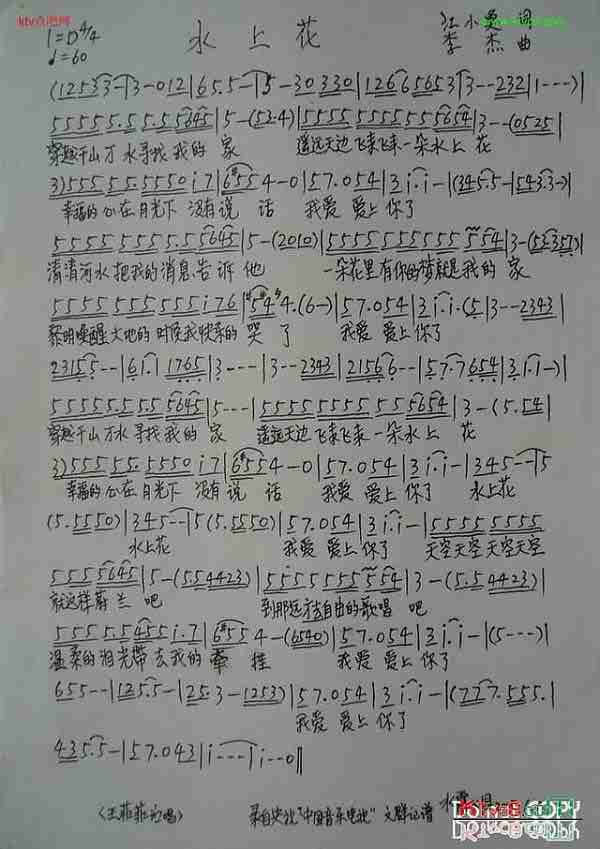 水上花
1=D 4/4
♩=60
江小曼 词
李杰 曲
(12533-|3-012|65.5-|5-30330|12665653|3--232|1---)|
55555.55.55645|5-(52.4)|5555555555654|3--(0525|
穿越千山万水寻找我的 家 遥远天边飞来飞来一朵水上 花
3)55555.5550i7|6554-0|57.054|3i.i-|(345.5-|543.3-)|
幸福的你在月光下 没有说 话 我爱 爱上 你了
555555555.55645|5-(2010)|5555555555554|3-(53357)|
清清河水把我的消息告诉 他 一朵花里有你的梦就是我的 家
555555555555i76|544.(6-)|57.054|3i.i.(5|3--2343|
黎明唤醒大地的时候我快乐的 哭 了 我爱 爱上你了
23155--|61.1 1765|3----|3--2343|21566--|57.7654|3i.i-)|
55555.55.55645|5---|5555555555654|3-(5.54|
穿越千山万水寻找我的 家 遥远天边飞来飞来一朵水上 花
3)55555.5550i7|6554-0|57.054|3i.i-|345--|5
幸福的你在月光下 没有说 话 我爱 爱上 你了 水上花
(5.5550)|345--|5(5.5550)|57.054|3i.i-|55555555
水上花 我爱 爱上 你了 天空天空天空天空
55555645|5-(5.54423)|5555555554|3-(5.54423)|
就这样蔚兰 吧 到那远方去自由的歌唱 吧
55555.5455i.7|6554-(6540)|57.054|3i.i-|(5---)|
温柔的目光带去我的 牵 挂 我爱 爱上 你了
655--|125.5-|25.3-1253)|57.054|3i.i-|(727.555.|
我爱 爱上 你了
435.5-|57.043|i---|i--0‖
(王菲菲演唱)
录自央视"中国音乐电视" 文群记谱